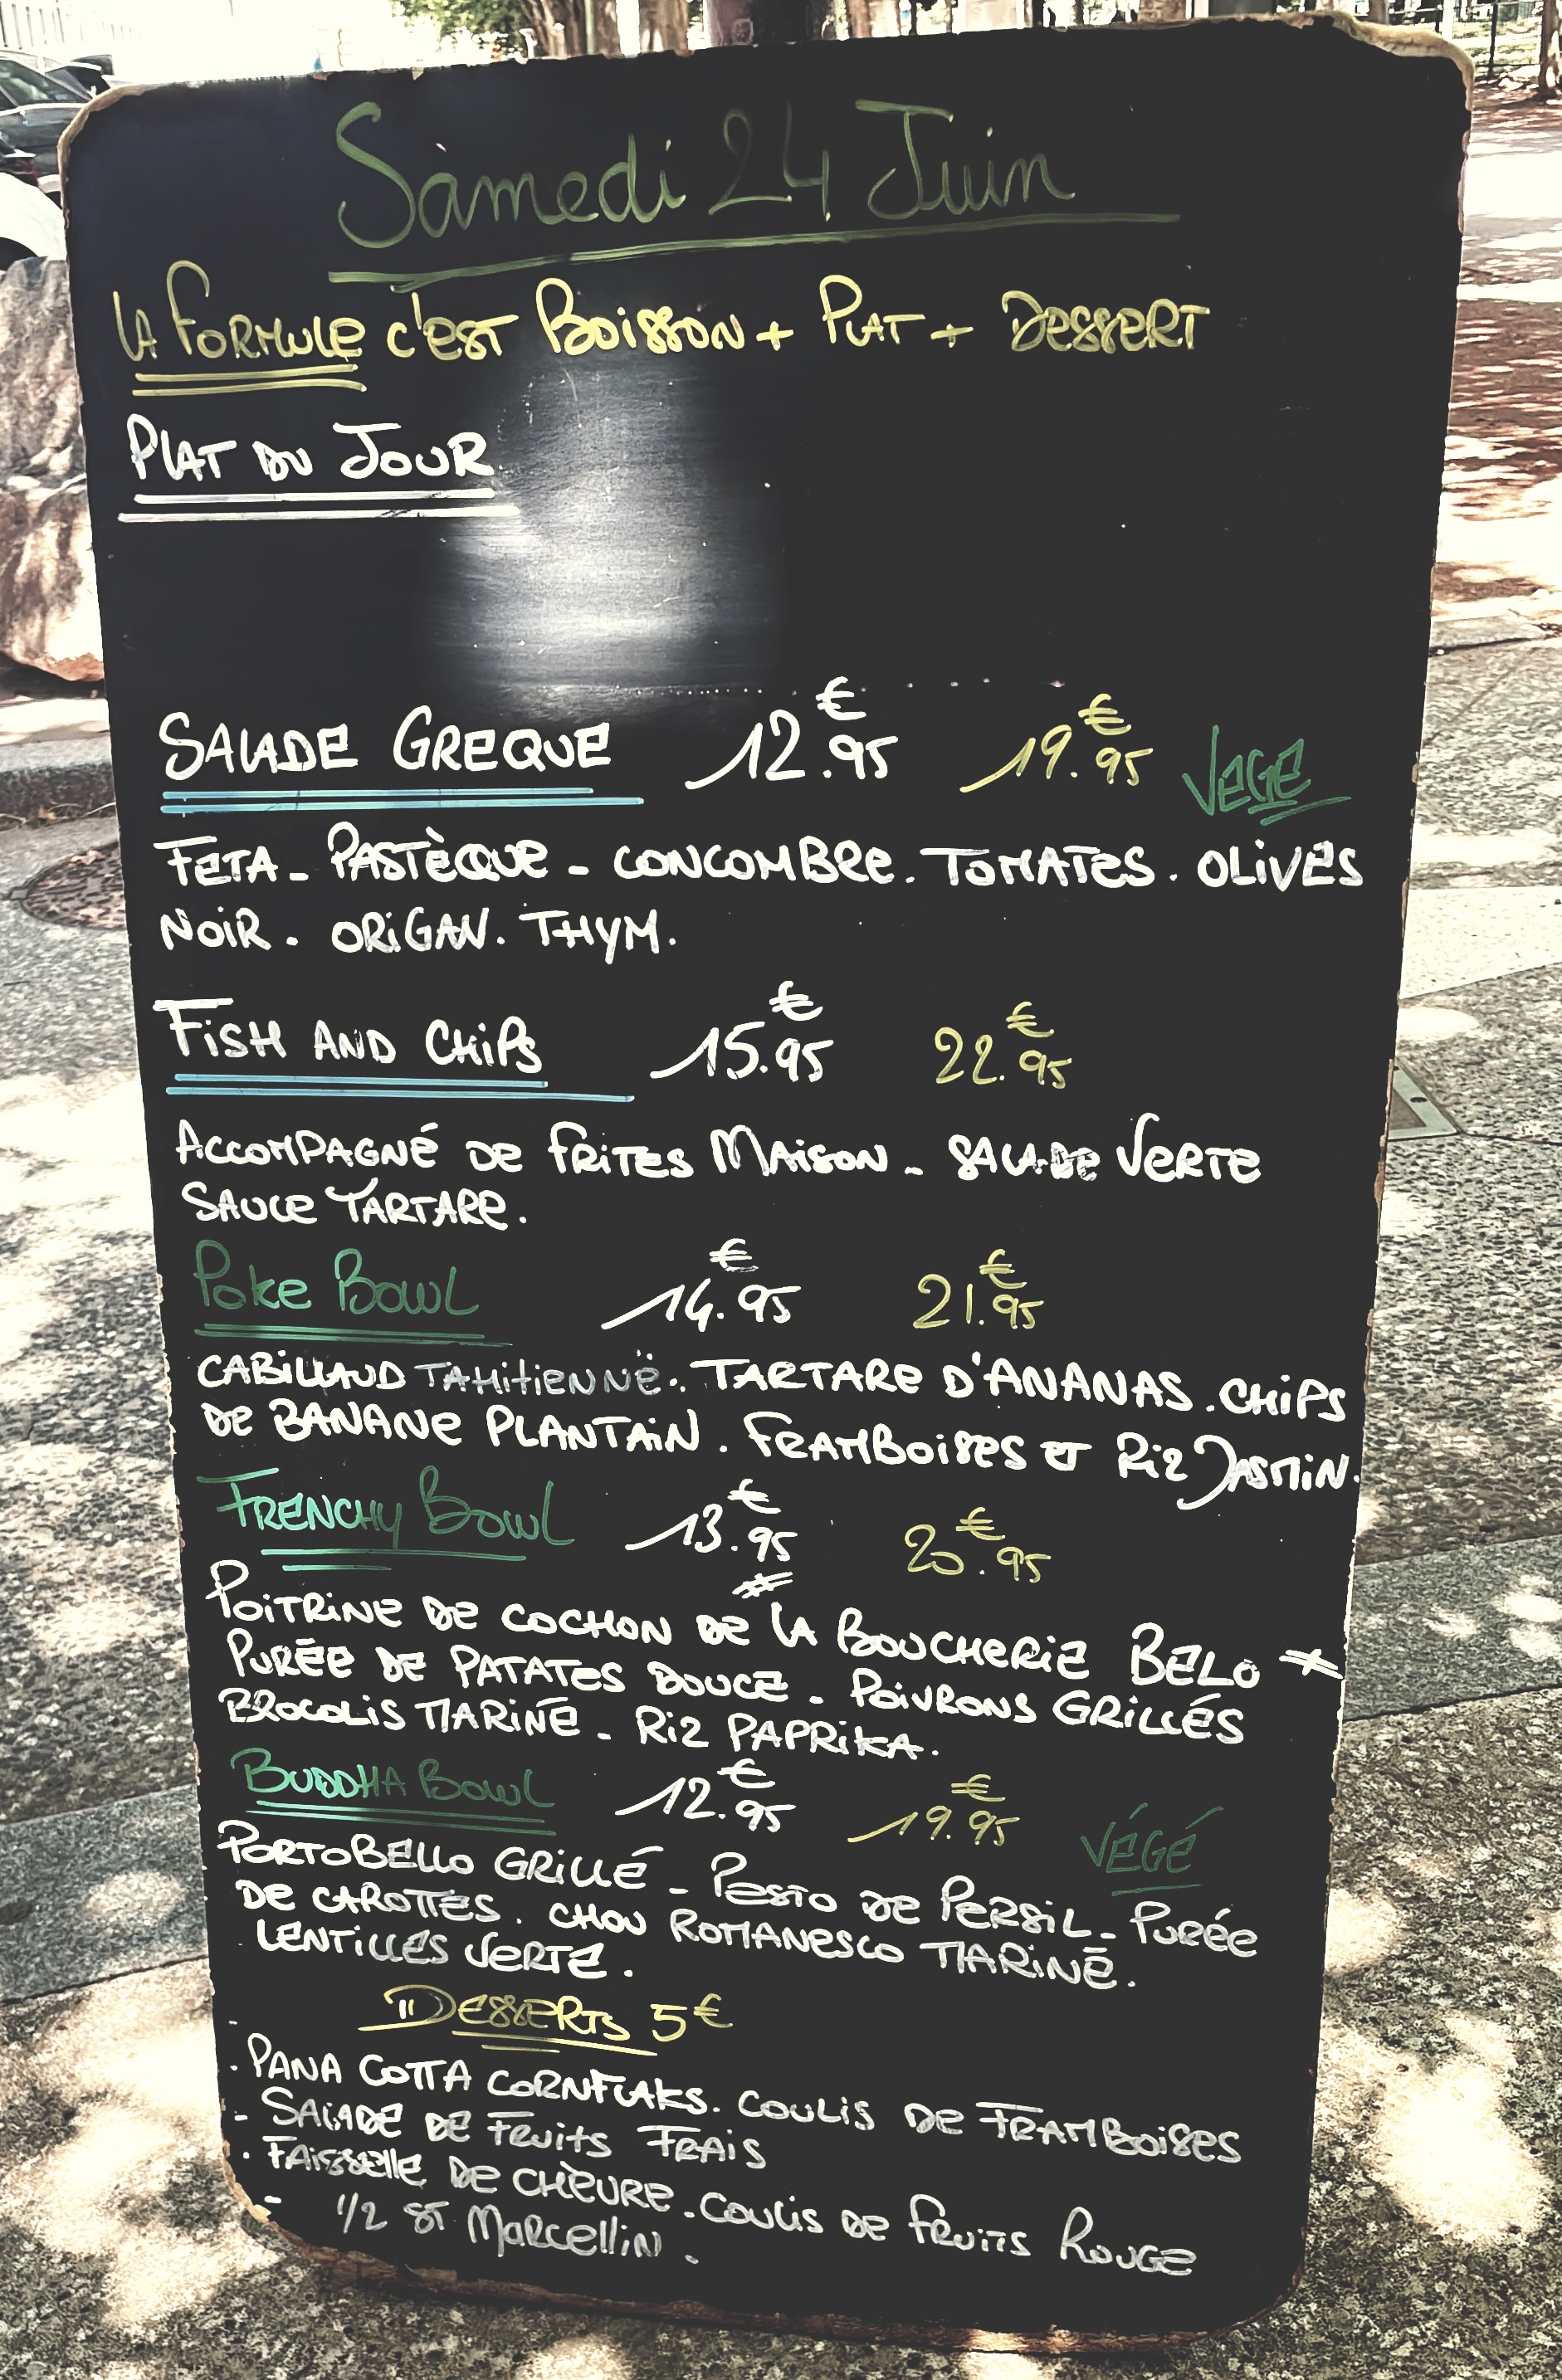 Samedi 24 Juin
LA FORMULE C'EST BOISSON + PLAT + DESSERT
PLAT DU JOUR
SALADE GREQUE 12.€95 19.€95 VEGE
FETA - PASTÈQUE - CONCOMBRE. TOMATES. OLIVES
NOIR. ORIGAN. THYM.
FISH AND CHIPS 15.€95 22.€95
ACCOMPAGNÉ DE FRITES MAISON - SALADE VERTE
SAUCE TARTARE.
Poke Bowl 14.€95 21.€95
CABILLAUD TAHITIENNE.. TARTARE D'ANANAS. CHIPS
DE BANANE PLANTAIN. FRAMBOISES ET RIZ JASMIN.
FRENCHY BOWL 13.€95 20.€95
POITRINE DE COCHON DE LA BOUCHERIE BELO
PURÉE DE PATATES DOUCE - POIVRONS GRILLÉS
BROCOLIS MARINÉ - RIZ PAPRIKA.
BUDDHA BOWL 12.€95 19.€95 VÉGÉ
PORTOBELLO GRILLÉ - PESTO DE PERSIL - PURÉE
DE CAROTTES. CHOU ROMANESCO MARINÉ.
LENTILLES VERTE.
DESSERTS 5€
. PANA COTTA CORNFLAKS. COULIS DE FRAMBOISES
- SALADE DE FRUITS FRAIS
. FAISSELLE DE CHÈVRE - COULIS DE FRUITS ROUGE
- 1/2 ST MARCELLIN.